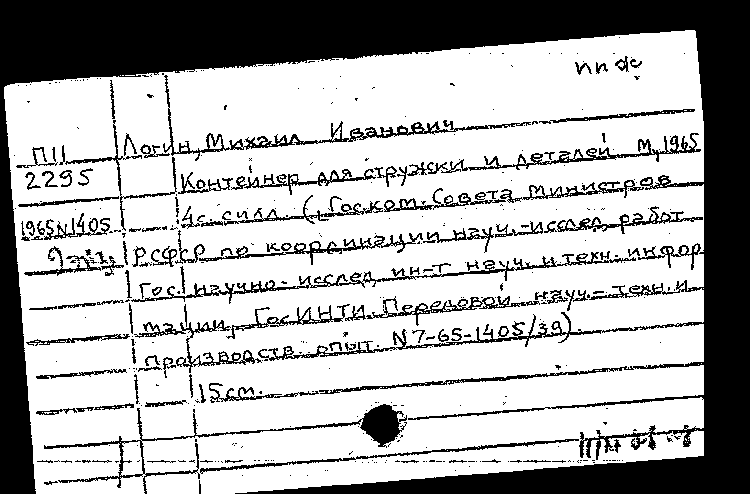 пп дс
Логин, Михаил Иванович
П11
2295 Контейнер для стружки и деталей М, 1965
1965N1405 4с. силл. (, Госком. Совета Министров
РСФСР по координации науч.-исслед. работ
Гос. научно-исслед. ин-т науч. и техн. инфор
мации, ГосИНТИ. Передовой науч.-техн. и
производств. опыт. N7-65-1405/39).
15 см.